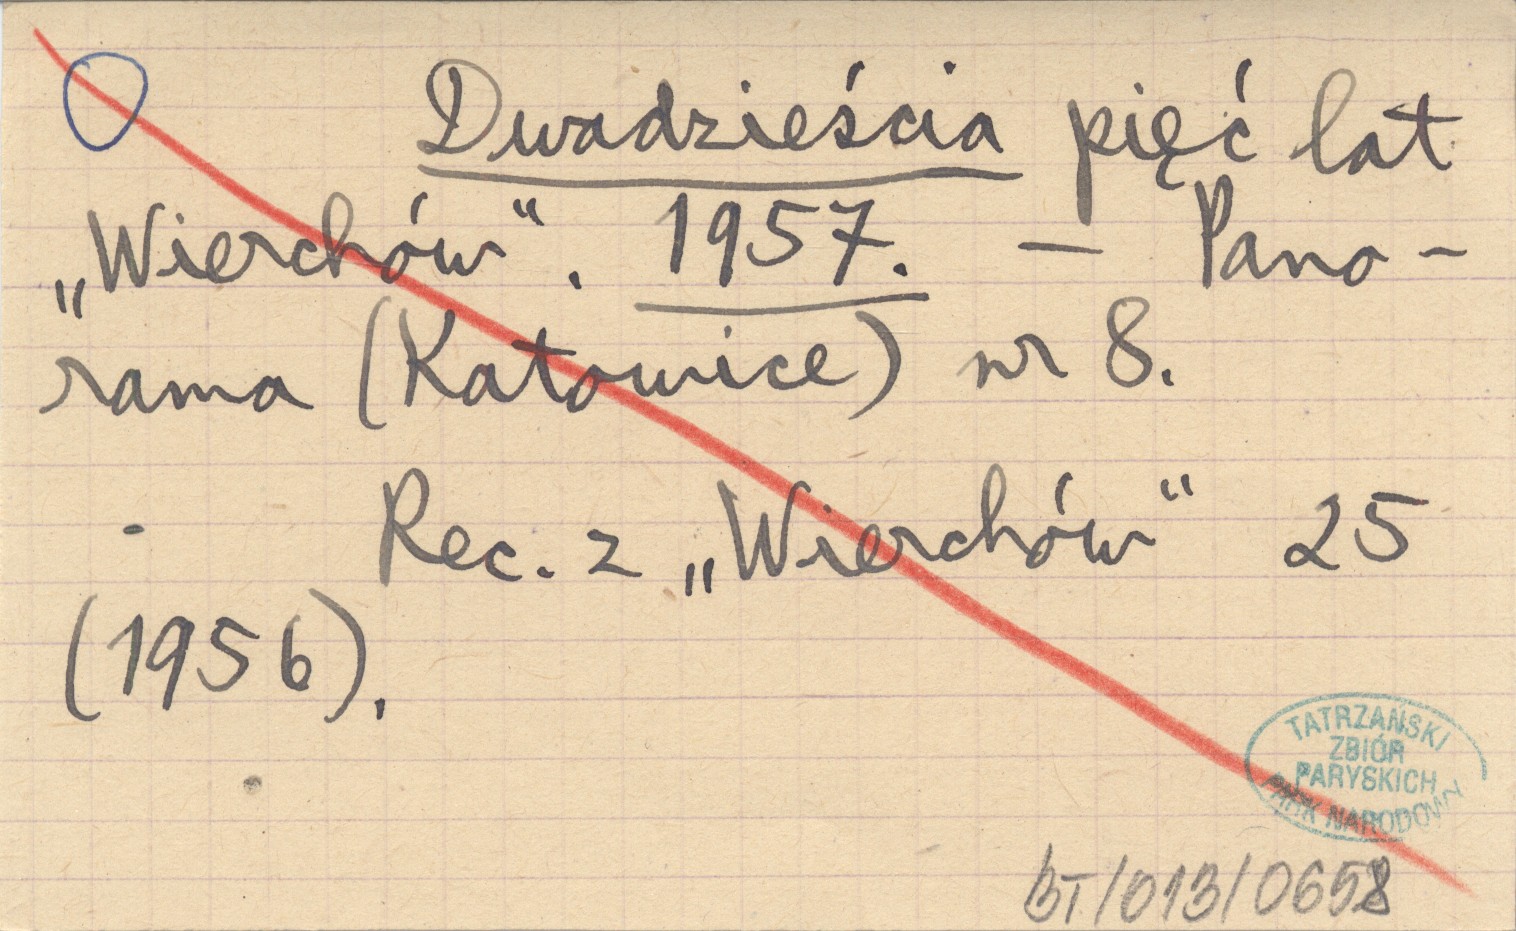 Dwadzieścia pięć lat
„Wierchów“. 1957. — Pano-
rama (Katowice) nr 8.
Rec. z „Wierchów“ 25
(1956).
TATRZAŃSKI
ZBIÓR
PARYSKICH
PARK NARODOWY
BT/013/0658